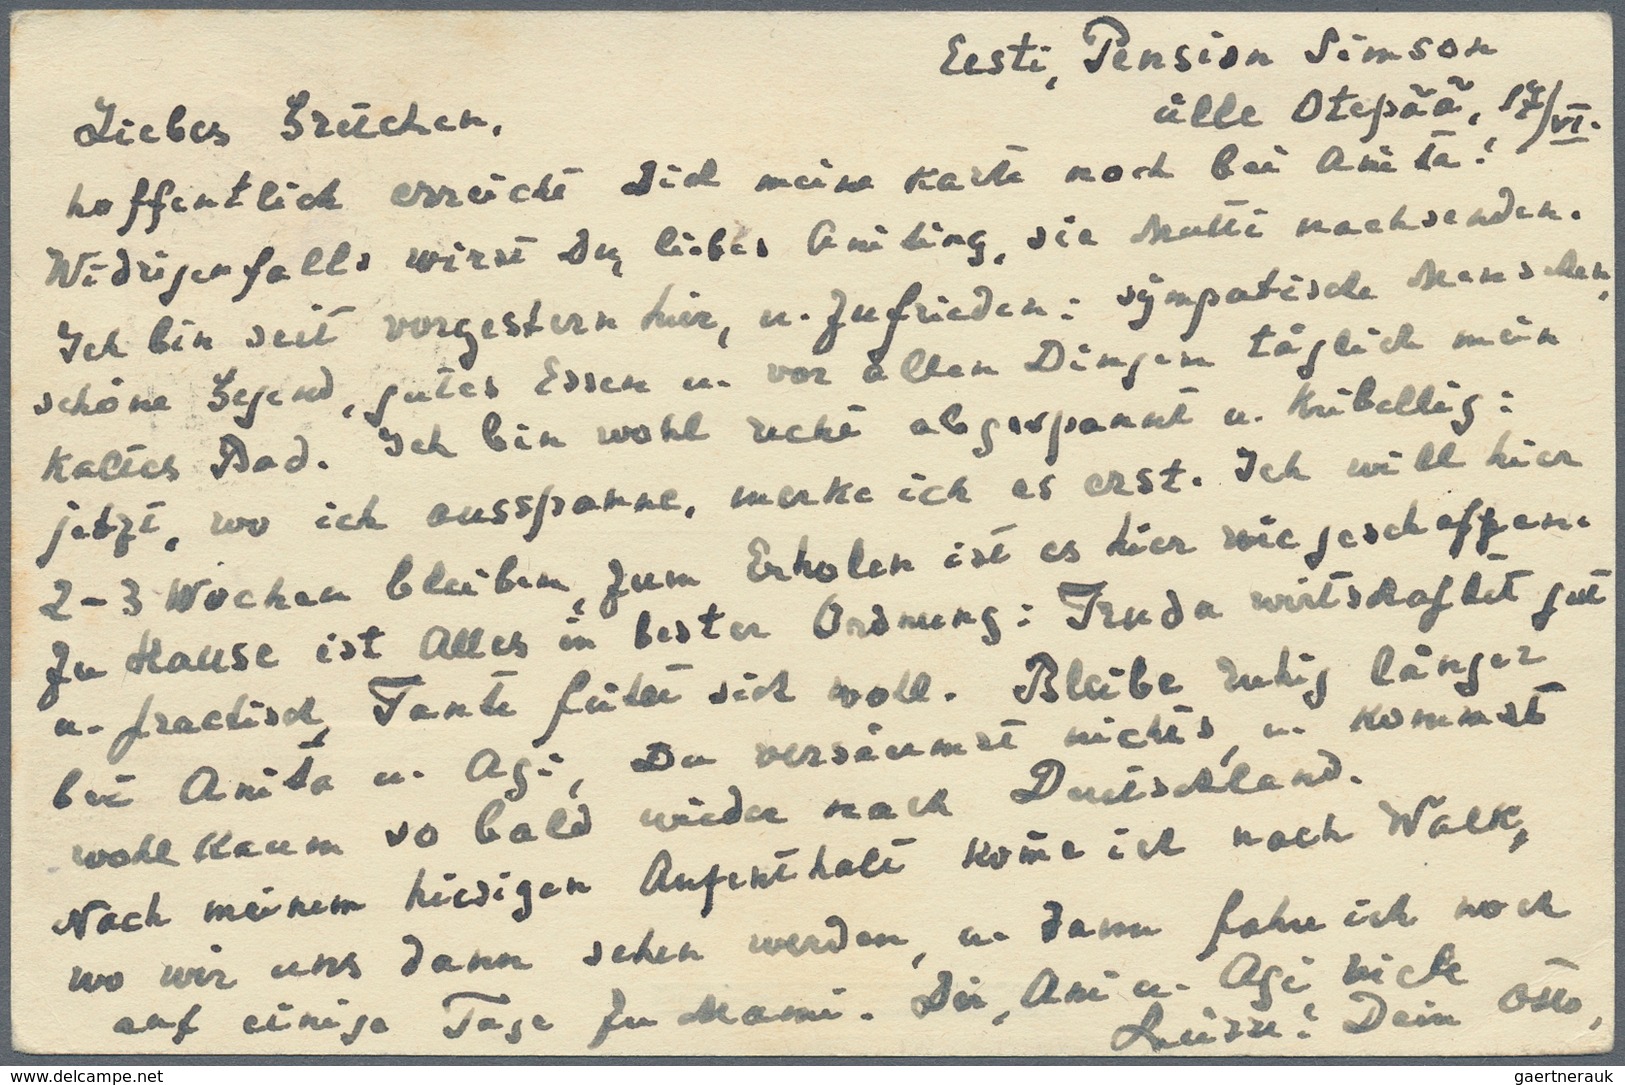 Eesti, Pension Simson
ülle Otepää, 17/VI.
Liebes Gretchen,
hoffentlich erreicht Dich meine Karte noch bei Anita!
Widrigenfalls wirst Du, liebes Aniting, sie Mutti nachsenden.
Ich bin seit vorgestern hier, u. zufrieden: sympatische Menschen,
schöne Gegend, gutes Essen u. vor allen Dingen täglich mein
kaltes Bad. Ich bin wohl recht abgespannt u. kribbelig:
jetzt, wo ich ausspanne, merke ich es erst. Ich will hier
2-3 Wochen bleiben, zum Erholen ist es hier wie geschaffen.
Zu Hause ist Alles in bester Ordnung: Truda wirtschaftet gut
u. practisch, Tante fühlt sich wohl. Bleibe ruhig länger
bei Anita u. Agi, Du versäumst nichts, u. kommst
wohl kaum so bald wieder nach Deutschland.
Nach meinem hiesigen Aufenthalt kom̄e ich nach Walk,
wo wir uns dann sehen werden, u. dann fahre ich noch
auf einige Tage zu Mami. Dir, Ani u. Agi viele
Küsse! Dein Otto,
gaertnerauk
delcampe.net